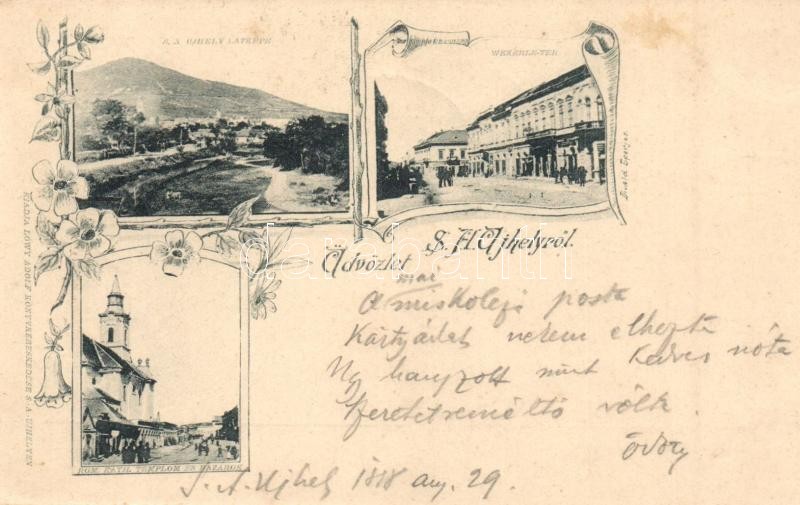 S. A. UJHELY LÁTKÉPE
WEKERLE-TÉR
Divald Eperjes.
Üdvözlet S. A. Ujhelyről.
darabanth.com
KIADJA LÖWY ADOLF KÖNYVKERESKEDÉSE S. A. UJHELYEN
RÓM. KATH. TEMPLOM ÉS BAZÁROK
mai
A miskolczi posta
Kártyádat nekem elhozta
Ugy hangzott mint kedves nóta
Szeretetreméltó volt.
S. A. Ujhely 1898 aug. 29.